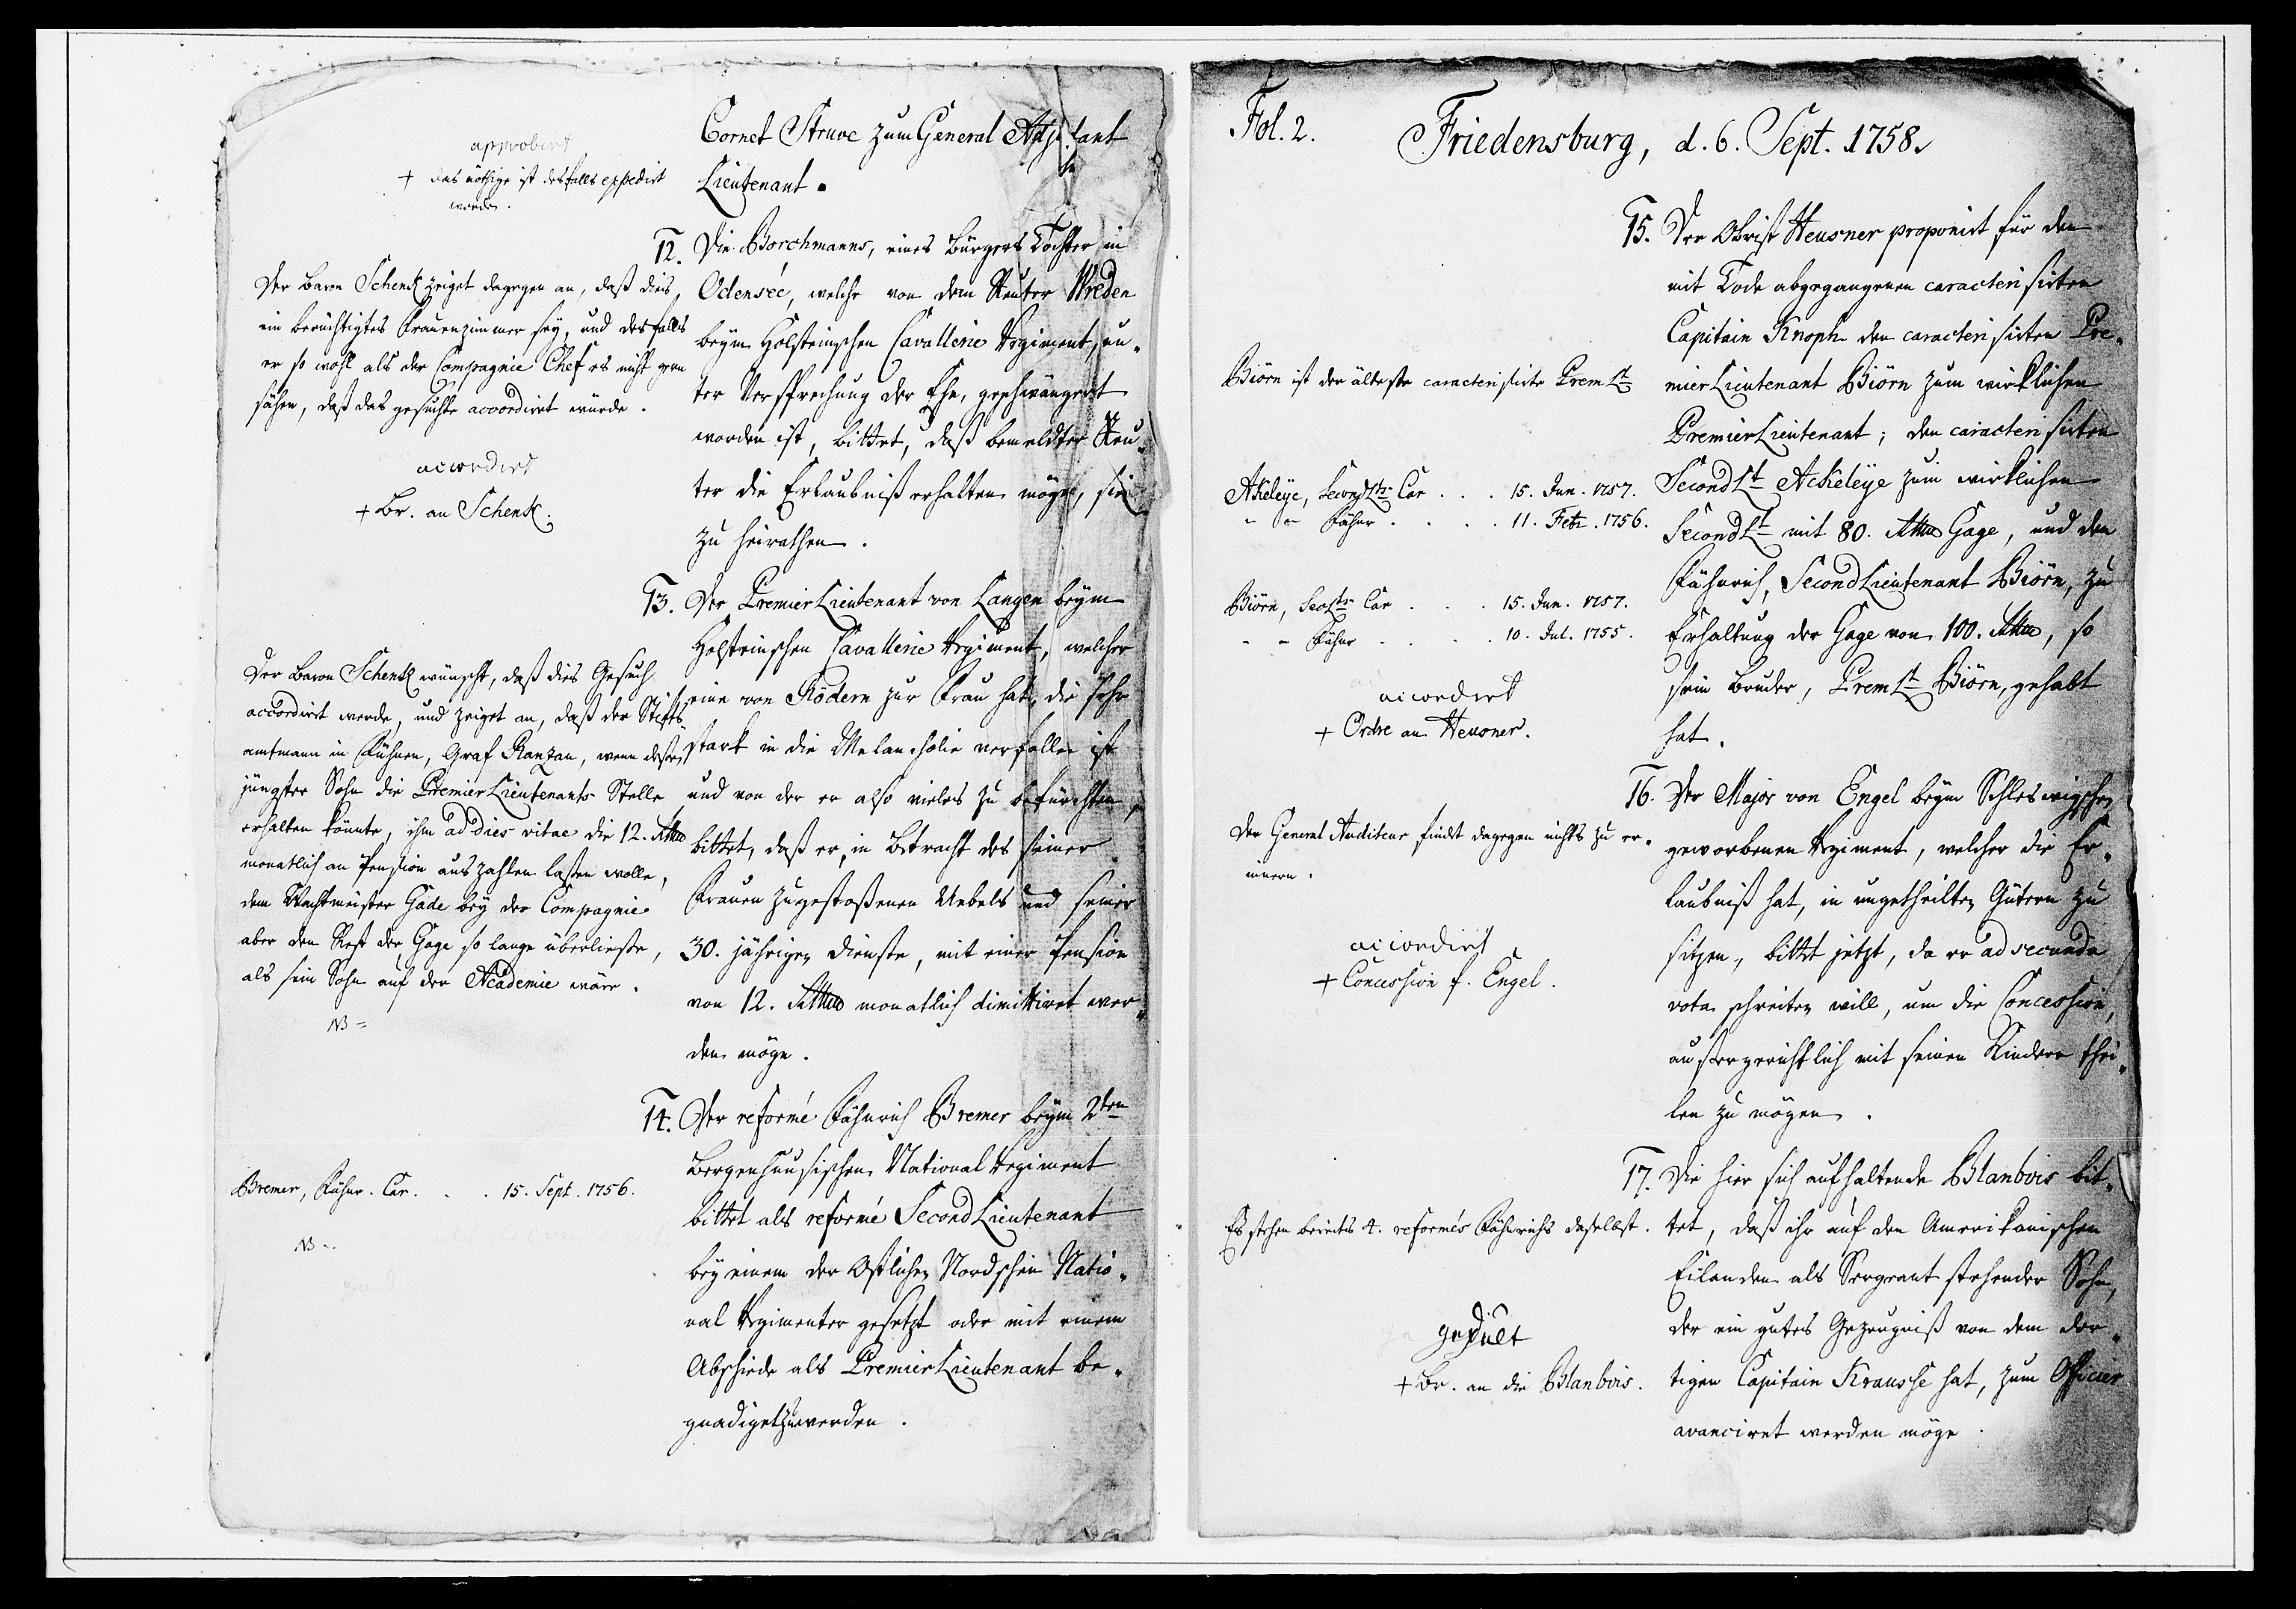 approbirt
+ das nöthige ist desfalls expedirt
worden.
Cornet Struve zum General Adjutant
Lieutenant.
12. Die Borchmanns, eines Bürgers Tochter in
Odenseé, welche von dem Reuter Wreden
beym Holsteinschen Cavallerie Regiment, un-
ter Versprechung der Ehe, geschwängert
worden ist, bittet, daß bemeldter Reu-
ter die Erlaubniß erhalten möge, sie
zu heirathen.
Der Baron Schenk zeiget dagegen an, daß dies
ein berüchtigtes Frauenzimmer sey, und desfalls
er so wohl als der Compagnie Chef es nicht gern
sähen, daß das gesuchte accordiret würde.
accordirt
+ Br. an Schenk.
13. Der PremierLieutenant von Langen beym
Holsteinschen Cavallerie Regiment, welcher
eine von Rödern zur Frau hat, die sehr
stark in die Melancholie verfallen ist
und von der er also vieles zu befürchten,
bittet, daß er, in Betracht des seiner
Frauen zugestoßenen Uebels und seiner
30. jährigen Dienste, mit einer Pension
von 12. Rthlr monatlich dimittiret wer-
den möge.
Der Baron Schenk wünscht, daß dies Gesuch
accordirt werde, und zeiget an, daß der Stifts
amtmann in Fühnen, Graf Ranzau, wenn dessen
jüngster Sohn die PremierLieutenants Stelle
erhalten könnte, ihm ad dies vitae die 12. Rthlr
monatlich an Pension auszahlen lassen wolle,
dem Wachtmeister Gade bey der Compagnie
aber den Rest der Gage so lange überliesse,
als sein Sohn auf der Academie wäre.
NB =
14. Der reformé Fähnrich Bremer beym 2ten
Bergenhuusischen National Regiment
bittet als reformé SecondLieutenant
bey einem der Ostlichen Nordschen Natio-
nal Regimenter gesetzt oder mit einem
Abschiede als PremierLieutenant be-
gnadiget zu werden.
Bremer, Fähnr. Car. . . 15. Sept. 1756.
NB -
Fol. 2.
Friedensburg, d. 6. Sept. 1758.
15. Der Obrist Heusner proponirt für den
mit Tode abgegangenen caracterisirten
Capitain Knoph den caracterisirten Pre-
mierLieutenant Biörn zum wirklichen
PremierLieutenant; den caracterisirten
SecondLt Ackeleye zum wirklichen
SecondLt mit 80. Rthlr Gage, und den
Fähnrich, SecondLieutenant Biörn, zu
Erhaltung der Gage von 100. Rthlr, so
sein Bruder, PremLt Biörn, gehabt
hat.
Biörn ist der älteste caracterisirte PremLt
AKeleye, SecondLts Car . . . 15. Jun. 1757.
- - Fähnr . . . . 11. Febr. 1756.
Biörn, SecLts Car . . . 15. Jun. 1757.
- - Fähnr . . . . 10. Jul. 1755.
accordirt
+ Ordre an Heusner.
16. Der Major von Engel beym Schleswigschen
geworbenen Regiment, welcher die Er-
laubniß hat, in ungetheilten Gütern zu
sitzen, bittet jetzt, da er ad secunda
vota schreiten will, um die Concession,
aussergerichtlich mit seinen Kindern thei-
len zu mögen.
Der General Auditeur findet dagegen nichts zu er-
innern.
accordirt
+ Concession f. Engel.
17. Die hier sich aufhaltende Blanbois bit-
tet, daß ihr auf den Amerikanischen
Eilanden als Sergeant stehender Sohn,
der ein gutes Gezeugniß von dem dor-
tigen Capitain Krausse hat, zum Officier
avanciret werden möge.
Es stehen bereits 4. reformés Fähnrichs daselbst.
gedult
+ Br. an die Blanbois.